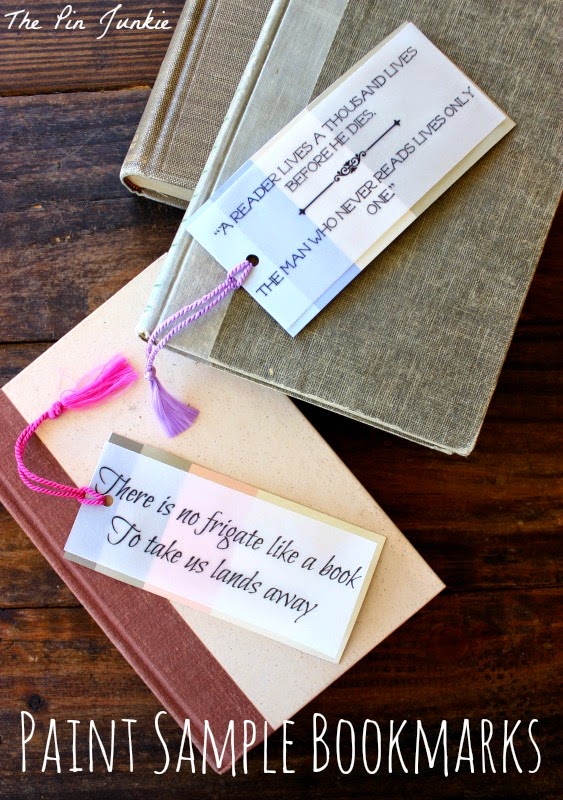 The Pin Junkie
"A READER LIVES A THOUSAND LIVES
BEFORE HE DIES.
THE MAN WHO NEVER READS LIVES ONLY
ONE."
There is no frigate like a book
To take us lands away
PAINT SAMPLE BOOKMARKS